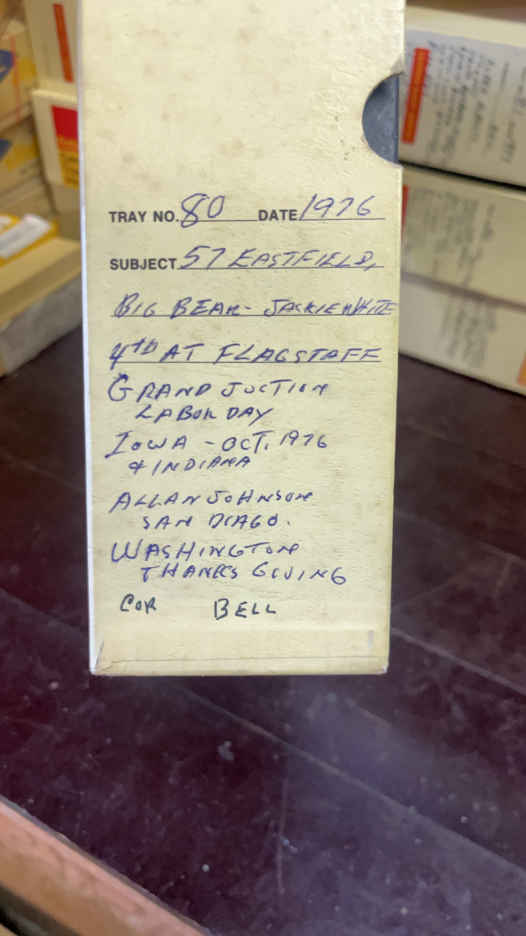 TRAY NO. 80 DATE 1976
SUBJECT 57 EASTFIELD,
BIG BEAR - JACKIE WHITE
4TH AT FLAGSTAFF
GRAND JUCTION
LABOR DAY
IOWA - OCT, 1976
& INDIANA
ALLAN JOHNSON
SAN DIAGO.
WASHINGTON
THANKS GIVING
COR BELL